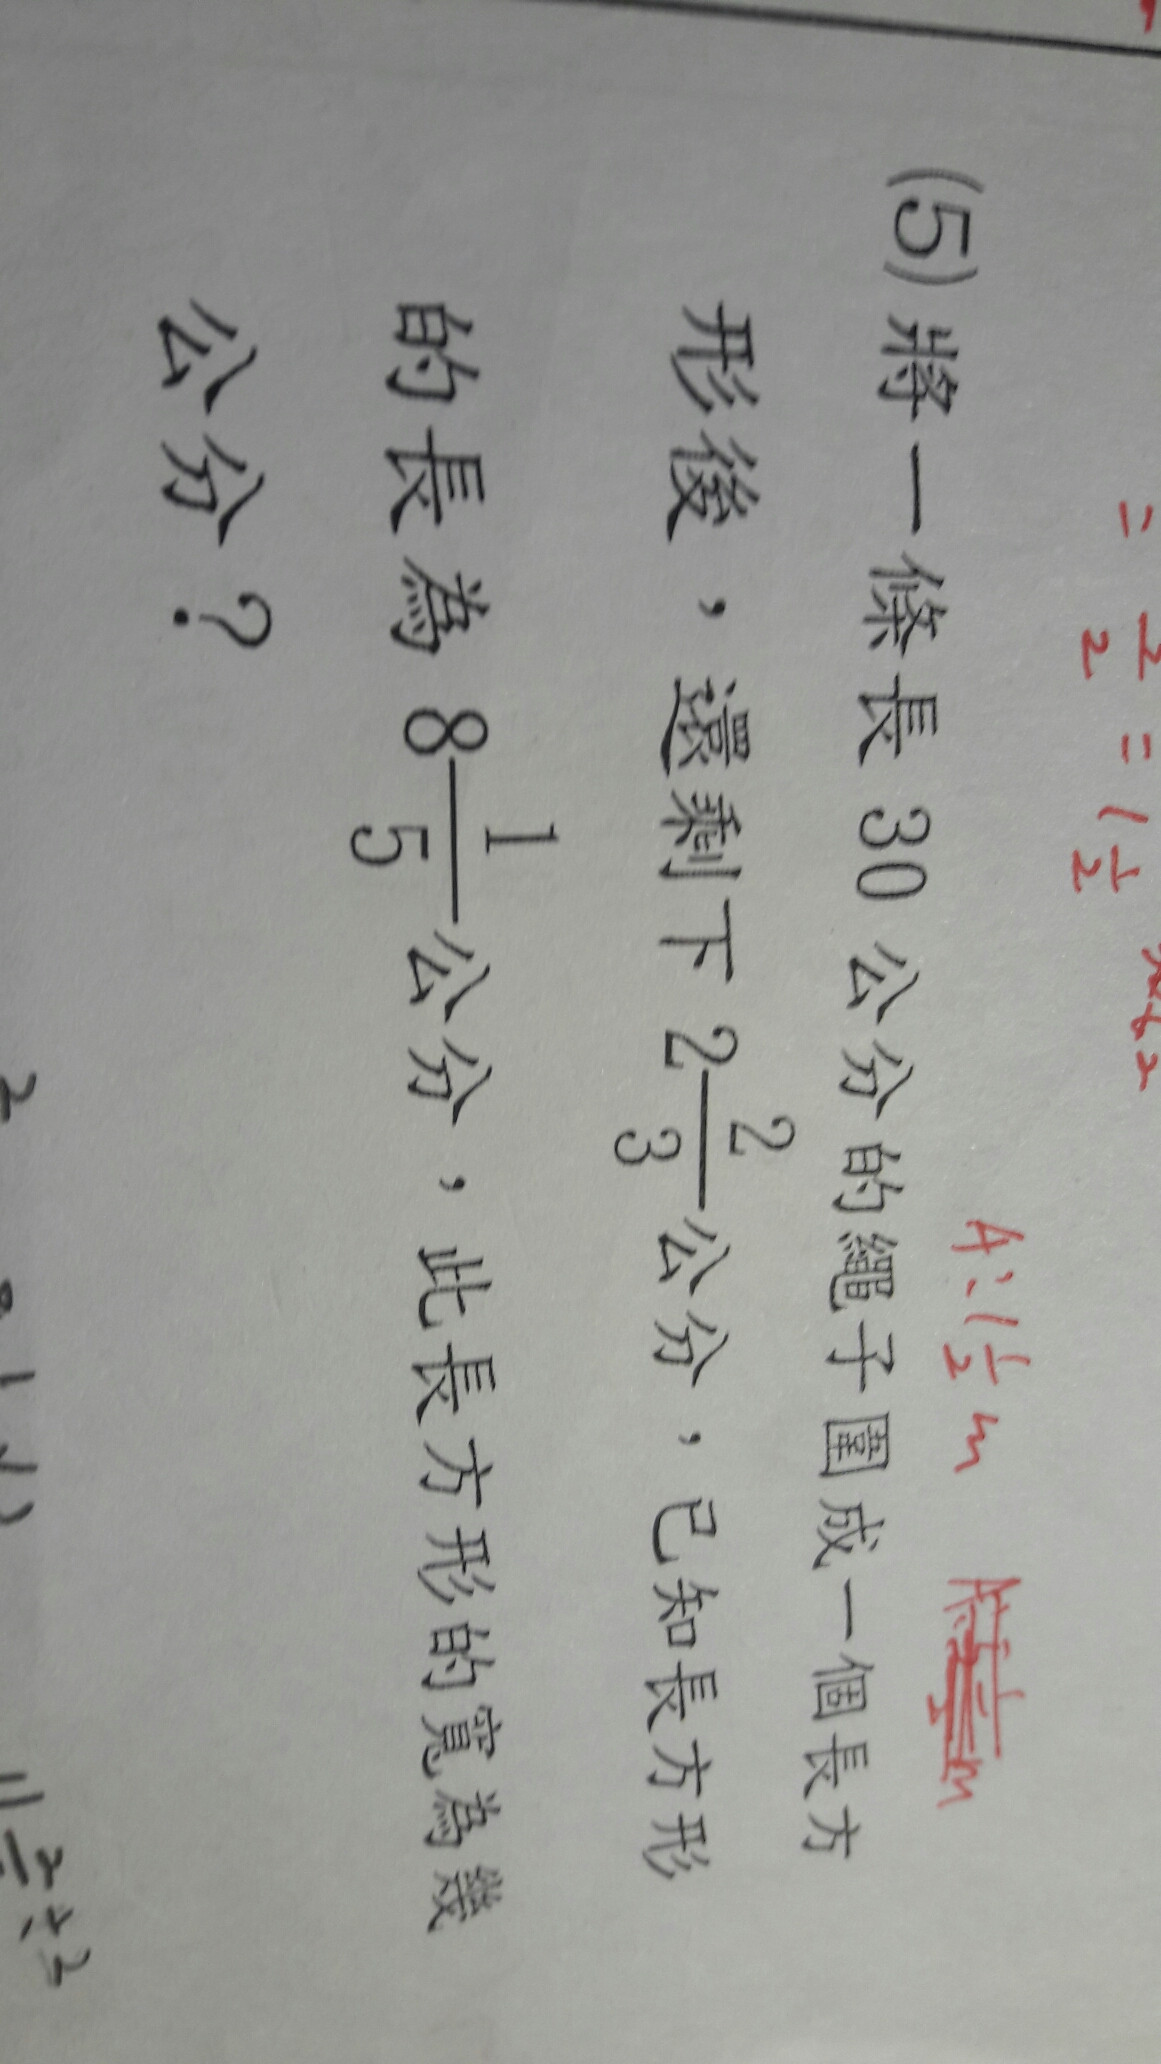 = 2 = 1 1/2
A: 1 1/2 m
(5) 將一條長 30 公分的繩子圍成一個長方
形後，還剩下 2 2/3 公分，已知長方形
的長為 8 1/5 公分，此長方形的寬為幾
公分？